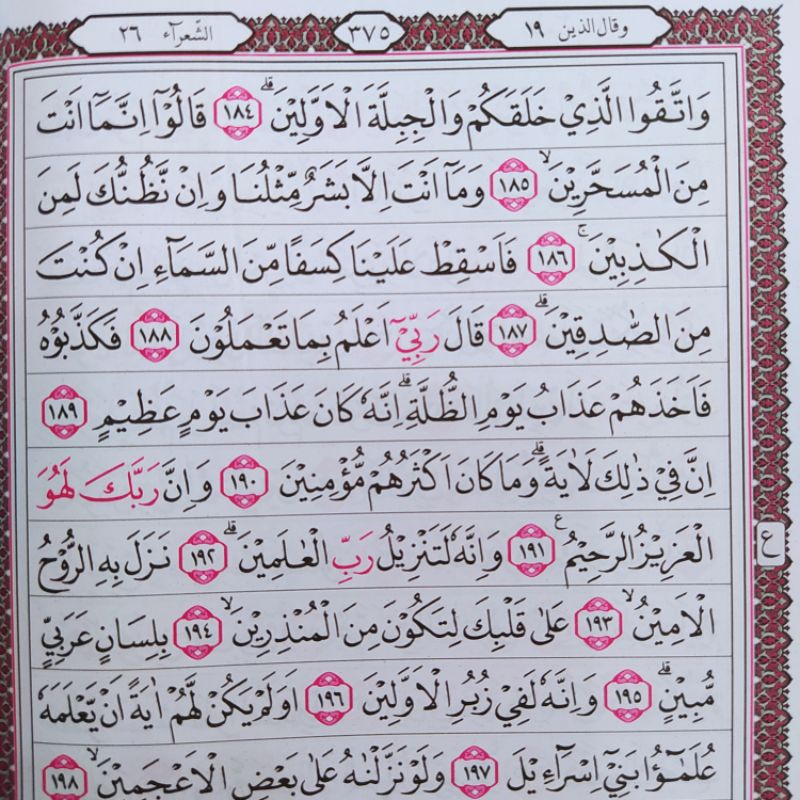 وقال الذين ١٩
٣٧٥
الشّعرآء ٢٦
وَاتَّقُوا الَّذِيْ خَلَقَكُمْ وَالْجِبِلَّةَ الْاَوَّلِيْنَ ۗ ١٨٤ قَالُوْٓا اِنَّمَآ اَنْتَ
مِنَ الْمُسَحَّرِيْنَ ۙ ١٨٥ وَمَآ اَنْتَ اِلَّا بَشَرٌ مِّثْلُنَا وَاِنْ نَّظُنُّكَ لَمِنَ
الْكٰذِبِيْنَ ۚ ١٨٦ فَاَسْقِطْ عَلَيْنَا كِسَفًا مِّنَ السَّمَاۤءِ اِنْ كُنْتَ
مِنَ الصّٰدِقِيْنَ ۗ ١٨٧ قَالَ رَبِّيْٓ اَعْلَمُ بِمَا تَعْمَلُوْنَ ١٨٨ فَكَذَّبُوْهُ
فَاَخَذَهُمْ عَذَابُ يَوْمِ الظُّلَّةِ ۗ اِنَّهٗ كَانَ عَذَابَ يَوْمٍ عَظِيْمٍ ١٨٩
اِنَّ فِيْ ذٰلِكَ لَاٰيَةً ۗ وَمَا كَانَ اَكْثَرُهُمْ مُّؤْمِنِيْنَ ١٩٠ وَاِنَّ رَبَّكَ لَهُوَ
الْعَزِيْزُ الرَّحِيْمُ ࣖ ١٩١ وَاِنَّهٗ لَتَنْزِيْلُ رَبِّ الْعٰلَمِيْنَ ۗ ١٩٢ نَزَلَ بِهِ الرُّوْحُ
ع
الْاَمِيْنُ ۙ ١٩٣ عَلٰى قَلْبِكَ لِتَكُوْنَ مِنَ الْمُنْذِرِيْنَ ۙ ١٩٤ بِلِسَانٍ عَرَبِيٍّ
مُّبِيْنٍ ۗ ١٩٥ وَاِنَّهٗ لَفِيْ زُبُرِ الْاَوَّلِيْنَ ١٩٦ اَوَلَمْ يَكُنْ لَّهُمْ اٰيَةً اَنْ يَّعْلَمَهٗ
عُلَمٰۤؤُا بَنِيْٓ اِسْرَاۤءِيْلَ ١٩٧ وَلَوْ نَزَّلْنٰهُ عَلٰى بَعْضِ الْاَعْجَمِيْنَ ۙ ١٩٨